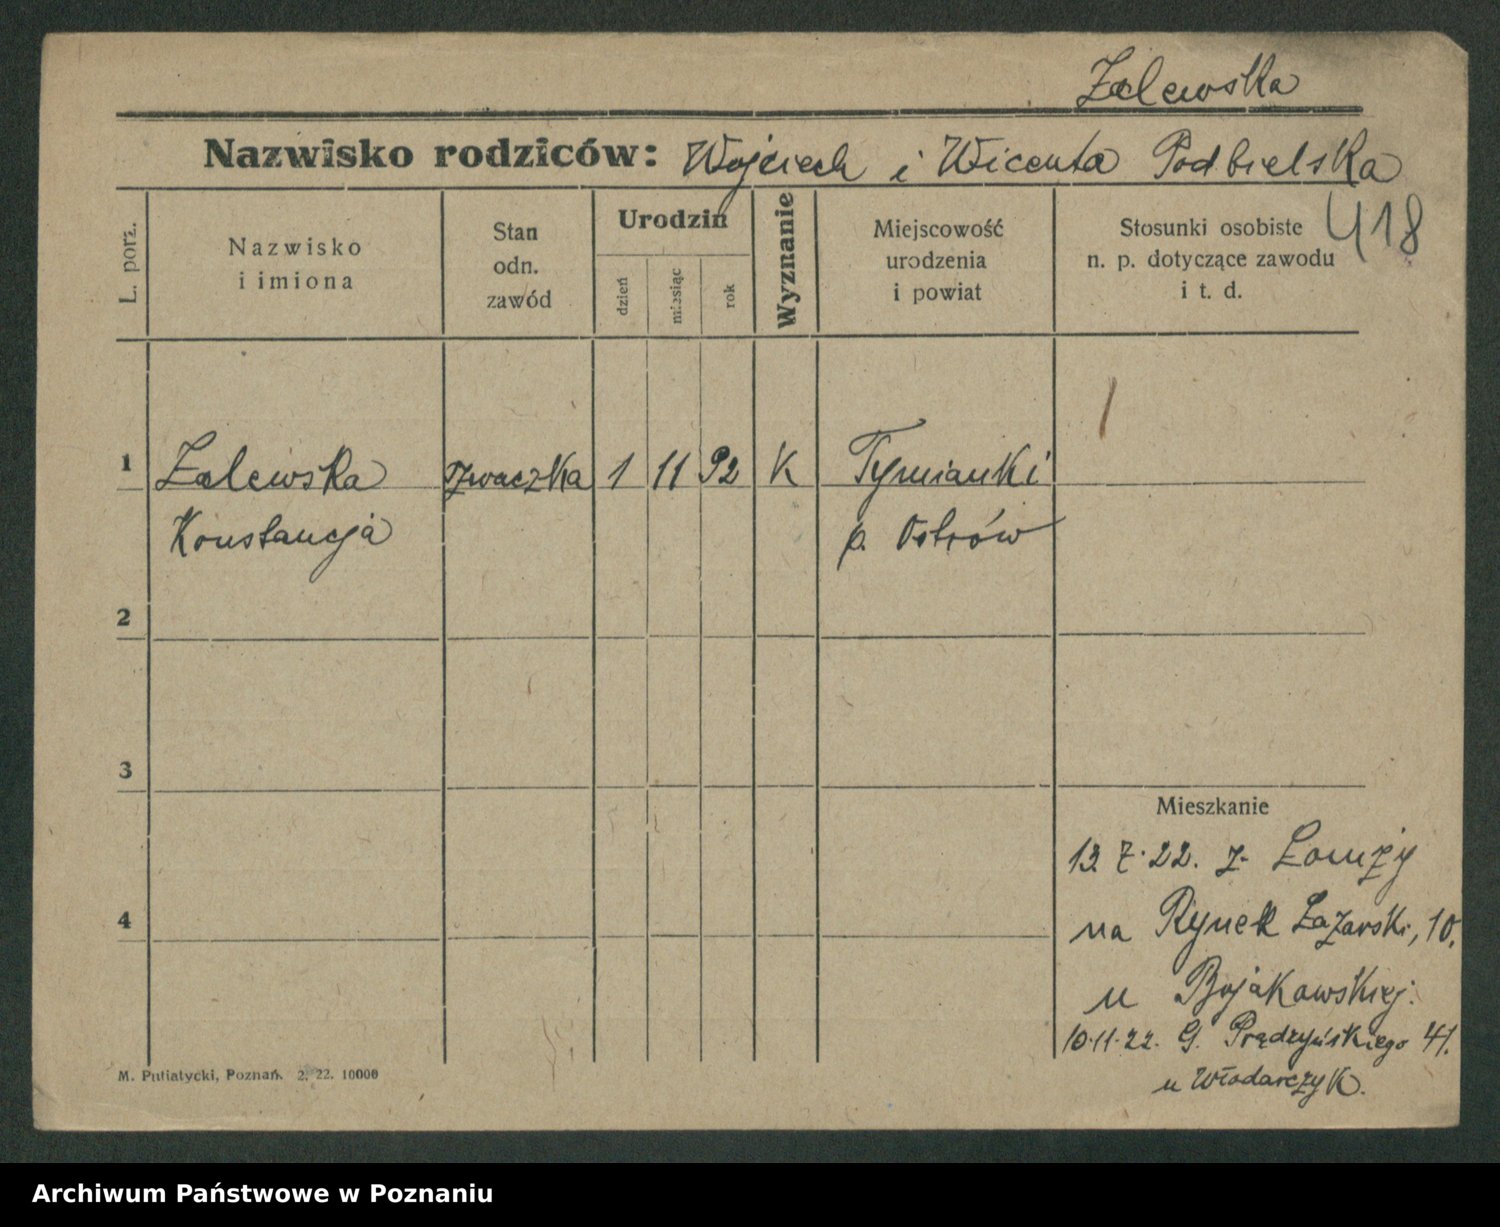 Zalewska
Nazwisko rodziców: Wojciech i Wicenta Podbielska
418
L. porz.
Nazwisko i imiona
Stan odn. zawód
Urodzin
dzień
miesiąc
rok
Wyznanie
Miejscowość urodzenia i powiat
Stosunki osobiste n. p. dotyczące zawodu i t. d.
1 Zalewska szwaczka 1 11 92 K Tymianki
Konstancja p. Ostrów
2
3
Mieszkanie
13 7. 22. z Łomży
4
na Rynek Łazarski, 10.
u Bojakowskiej.
10.11.22. G. Prądzyńskiego 41.
u Włodarczyk.
M. Putiatycki, Poznań. 2. 22. 10000
Archiwum Państwowe w Poznaniu